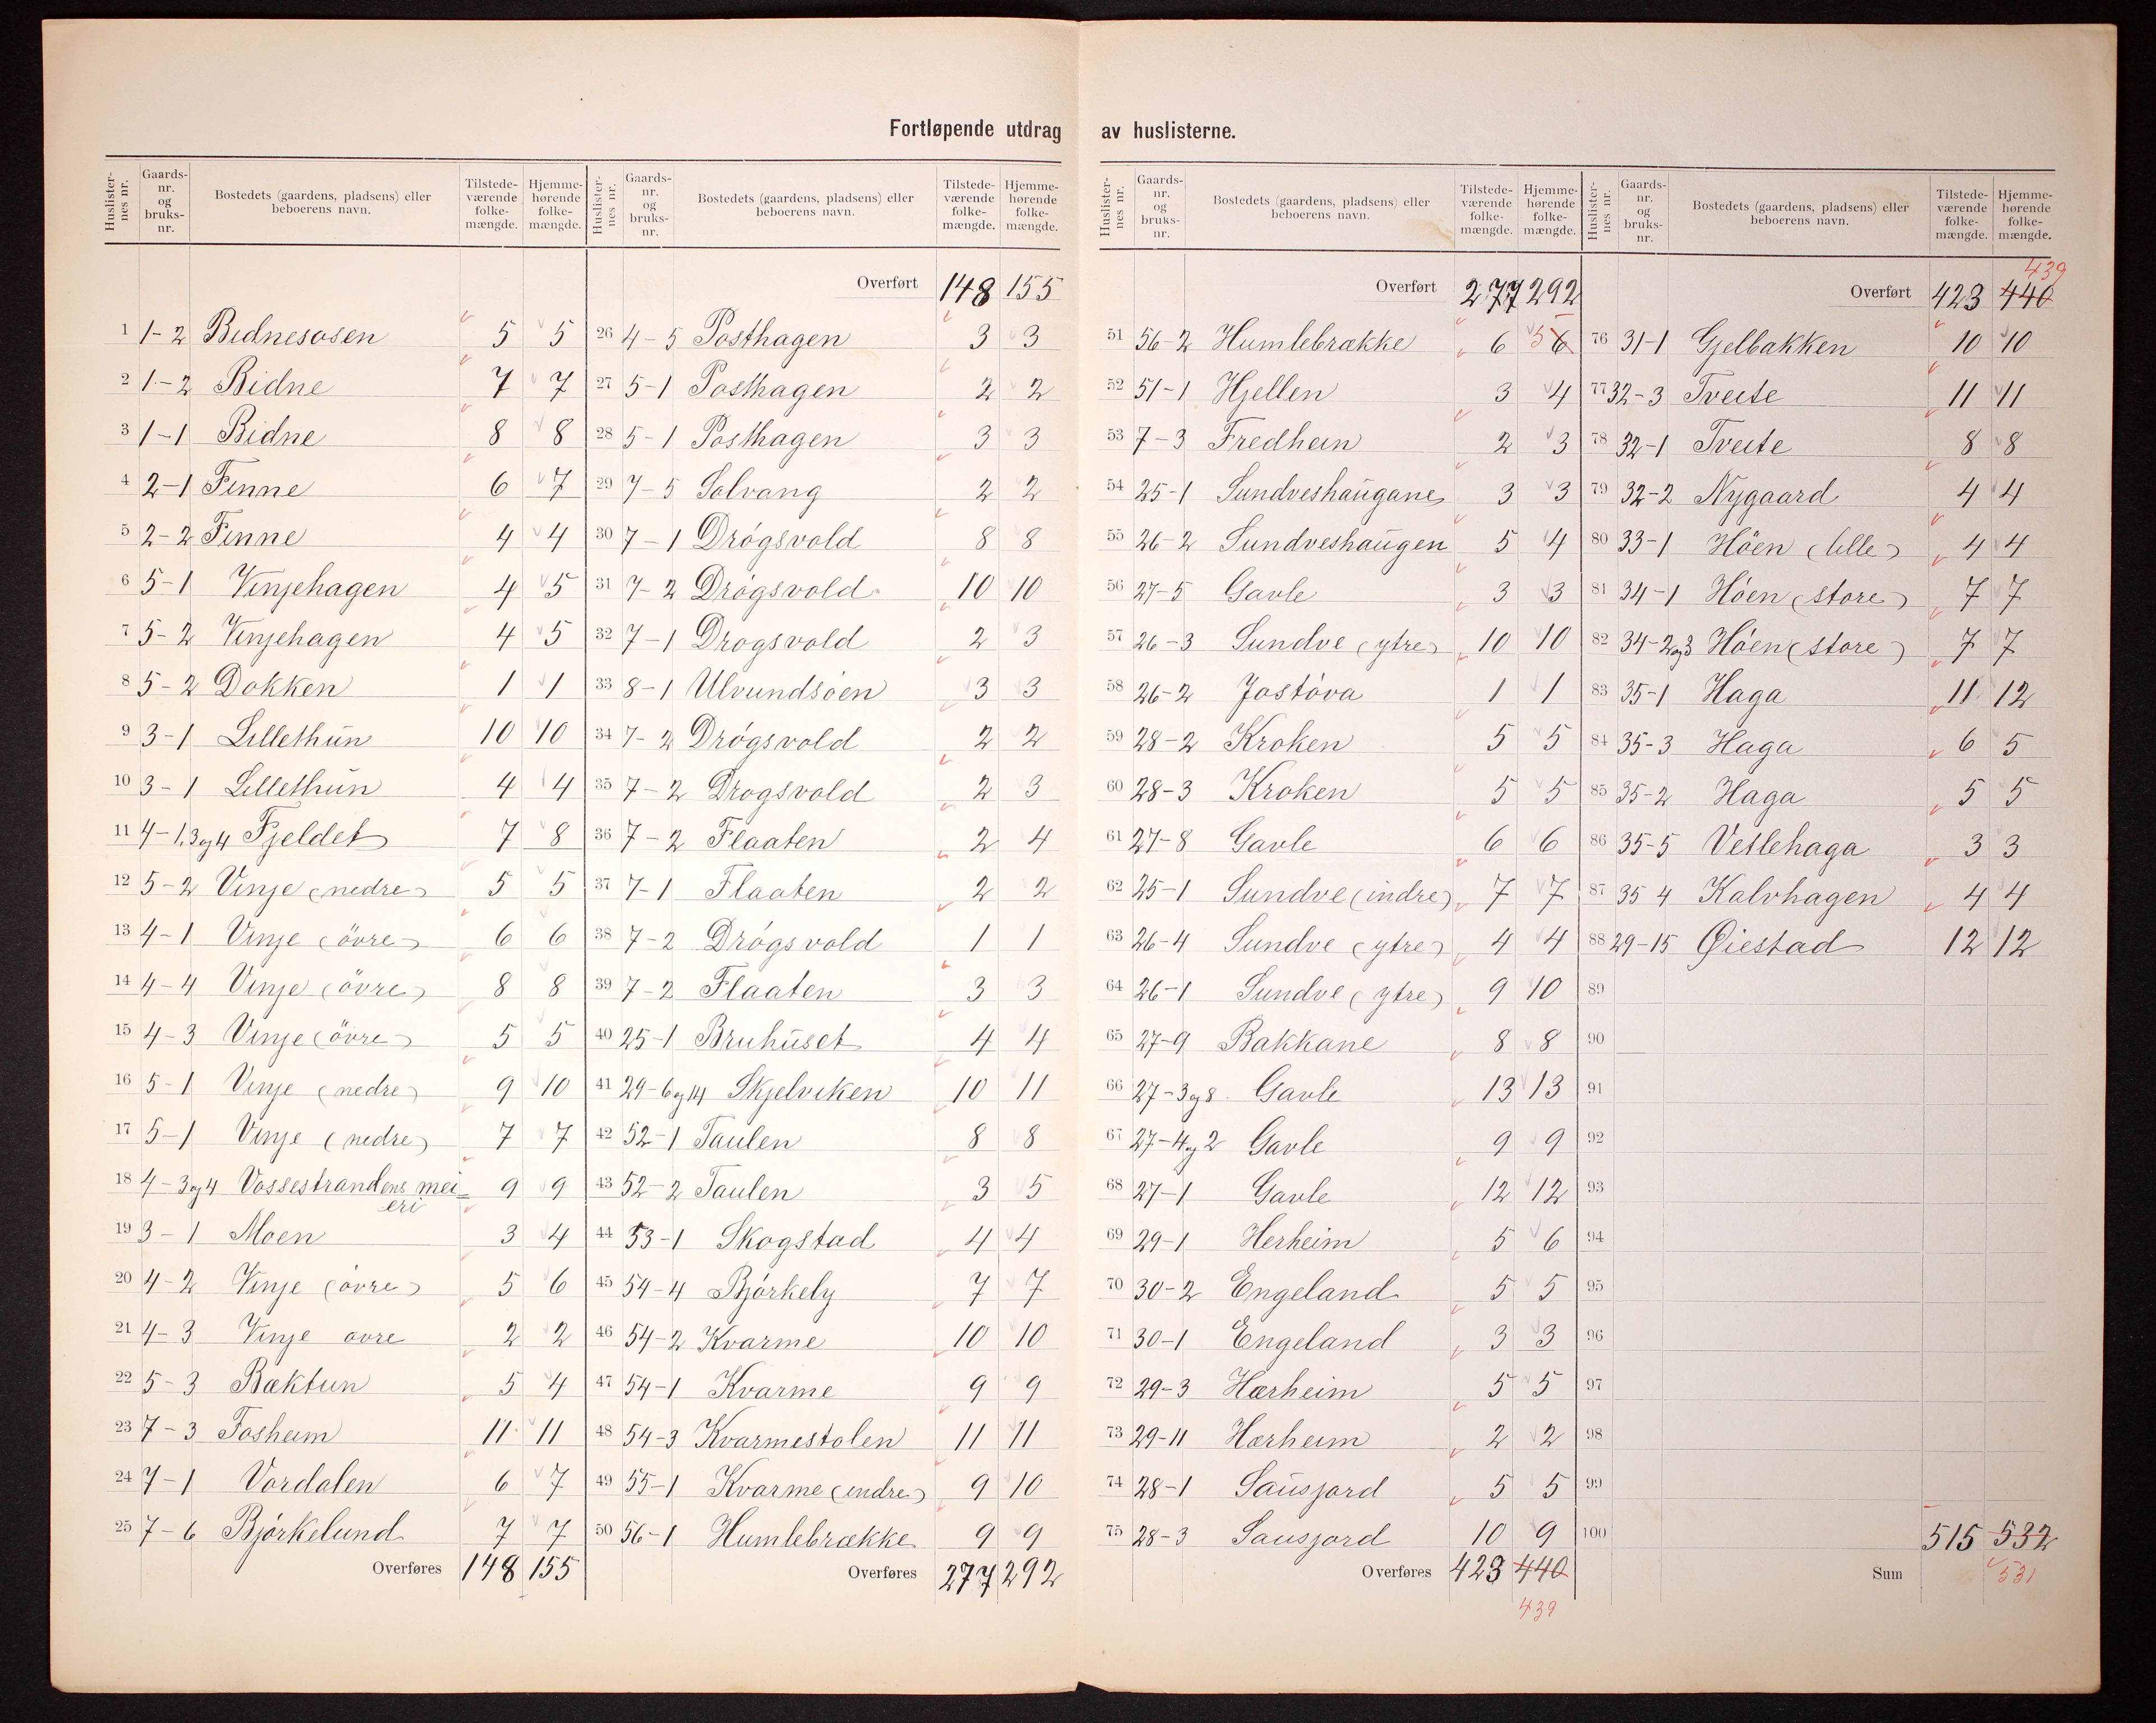 Fortløpende utdrag av huslisterne.
Huslister-nes nr. Gaards-nr. og bruks-nr. Bostedets (gaardens, pladsens) eller beboerens navn. Tilstede-værende folke-mængde. Hjemme-hørende folke-mængde.
1 1-2 Bidnesosen 5 5
2 1-2 Bidne 7 7
3 1-1 Bidne 8 8
4 2-1 Finne 6 7
5 2-2 Finne 4 4
6 5-1 Vinjehagen 4 5
7 5-2 Vinjehagen 4 5
8 5-2 Dokken 1 1
9 3-1 Lillethun 10 10
10 3-1 Lillethun 4 4
11 4-1,3og4 Fjeldet 7 8
12 5-2 Vinje (nedre) 5 5
13 4-1 Vinje (övre) 6 6
14 4-4 Vinje (övre) 8 8
15 4-3 Vinje (övre) 5 5
16 5-1 Vinje (nedre) 9 10
17 5-1 Vinje (nedre) 7 7
18 4-3og4 Vossestrandens mei= 9 9
eri
19 3-1 Moen 3 4
20 4-2 Vinje (övre) 5 6
21 4-3 Vinje övre 2 2
22 5-3 Bæktun 5 4
23 7-3 Fosheim 11 11
24 7-1 Vordalen 6 7
25 7-6 Björkelund 7 7
Overføres 148 155
Huslister-nes nr. Gaards-nr. og bruks-nr. Bostedets (gaardens, pladsens) eller beboerens navn. Tilstede-værende folke-mængde. Hjemme-hørende folke-mængde.
Overført 148 155
26 4-5 Posthagen 3 3
27 5-1 Posthagen 2 2
28 5-1 Posthagen 3 3
29 7-5 Solvang 2 2
30 7-1 Drögsvold 8 8
31 7-2 Drögsvold 10 10
32 7-1 Drogsvold 2 3
33 8-1 Ulvundsöen 3 3
34 7-2 Drögsvold 2 2
35 7-2 Drogsvold 2 3
36 7-2 Flaaten 2 4
37 7-1 Flaaten 2 2
38 7-2 Drögsvold 1 1
39 7-2 Flaaten 3 3
40 25-1 Bruhuset 4 4
41 29-6og14 Skjelviken 10 11
42 52-1 Taulen 8 8
43 52-2 Taulen 3 5
44 53-1 Skogstad 4 4
45 54-4 Björkely 7 7
46 54-2 Kvarme 10 10
47 54-1 Kvarme 9 9
48 54-3 Kvarmestolen 11 11
49 55-1 Kvarme (indre) 9 10
50 56-1 Humlebrække 9 9
Overføres 277 292
Huslister-nes nr. Gaards-nr. og bruks-nr. Bostedets (gaardens, pladsens) eller beboerens navn. Tilstede-værende folke-mængde. Hjemme-hørende folke-mængde.
Overført 277 292
51 56-2 Humlebrække 6 5 6
52 51-1 Hjellen 3 4
53 7-3 Fredheim 2 3
54 25-1 Sundveshaugane 3 3
55 26-2 Sundveshaugen 5 4
56 27-5 Gavle 3 3
57 26-3 Sundve (ytre) 10 10
58 26-2 Jostöva 1 1
59 28-2 Kroken 5 5
60 28-3 Kroken 5 5
61 27-8 Gavle 6 6
62 25-1 Sundve (indre) 7 7
63 26-4 Sundve (ytre) 4 4
64 26-1 Sundve (ytre) 9 10
65 27-9 Bakkane 8 8
66 27-3og8 Gavle 13 13
67 27-4og2 Gavle 9 9
68 27-1 Gavle 12 12
69 29-1 Herheim 5 6
70 30-2 Engeland 5 5
71 30-1 Engeland 3 3
72 29-3 Hærheim 5 5
73 29-11 Hærheim 2 2
74 28-1 Sausjord 5 5
75 28-3 Sausjord 10 9
Overføres 423 440
439
Huslister-nes nr. Gaards-nr. og bruks-nr. Bostedets (gaardens, pladsens) eller beboerens navn. Tilstede-værende folke-mængde. Hjemme-hørende folke-mængde.
439
Overført 423 440
76 31-1 Gjelbakken 10 10
77 32-3 Tveite 11 11
78 32-1 Tveite 8 8
79 32-2 Nygaard 4 4
80 33-1 Höen (lille) 4 4
81 34-1 Höen (store) 7 7
82 34-2og3 Höen (store) 7 7
83 35-1 Haga 11 12
84 35-3 Haga 6 5
85 35-2 Haga 5 5
86 35-5 Vetlehaga 3 3
87 35 4 Kalvhagen 4 4
88 29-15 Øiestad 12 12
89
90
91
92
93
94
95
96
97
98
99
100
515 532
Sum 531